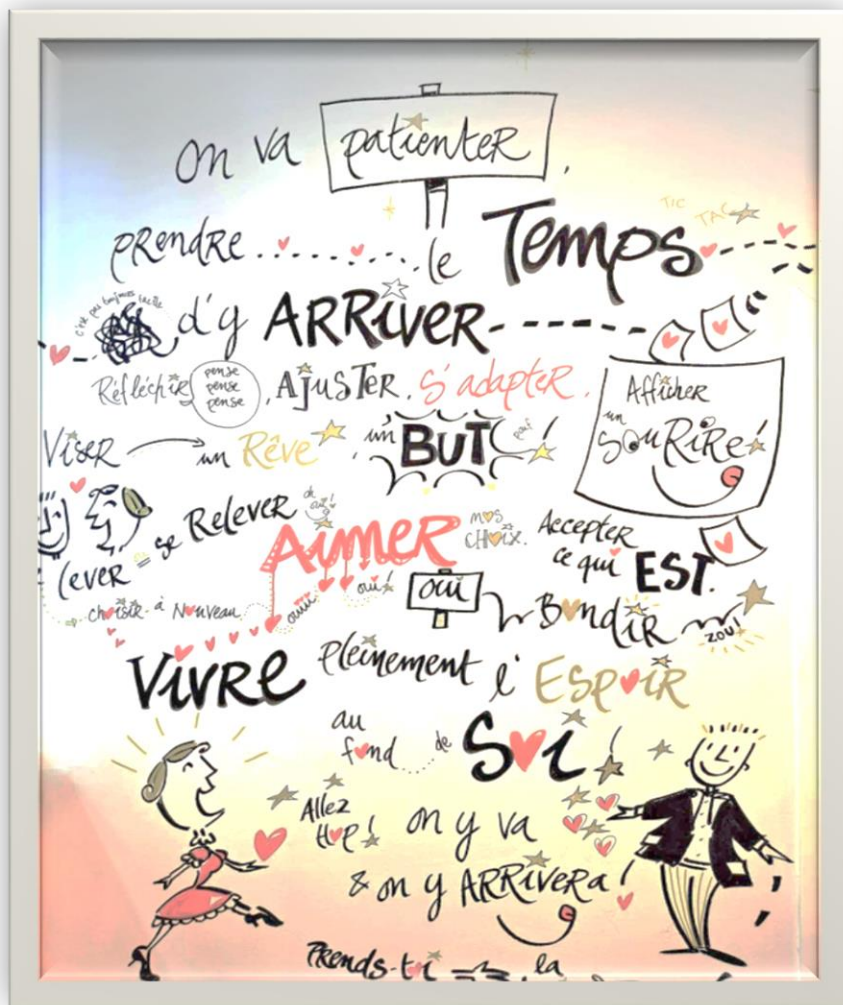 on va patienter,
TIC TAC
prendre ........ le Temps
c'est pas toujours facile
d'y ARRIVER
Réfléchir pense pense pense, AjusTER, s'adapter.
Afficher un souRiRe!
Viser un Rêve un BUT !
se Relever oh oui!
lever
Aimer mes choix. Accepter ce qui EST.
choisir à Nouveau ouiii oui! oui Bondir zou!
Vivre pleinement l'Espoir
au fond ... de Soi !
Allez Hop! on y va
& on y ARRivera!
Prends-toi la